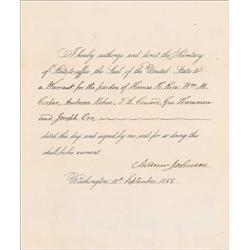 I hereby authorize and direct the Secretary
of State to affix the Seal of the United States to
a Warrant for the pardon of Thomas H. Rice Wm H.
Ambrose Kehoe, J. H. Coward, Geo.
and Joseph Orr
dated this day and signed by me, and for so doing this
shall be his warrant.
Andrew Johnson
Washington 18th September, 1865.